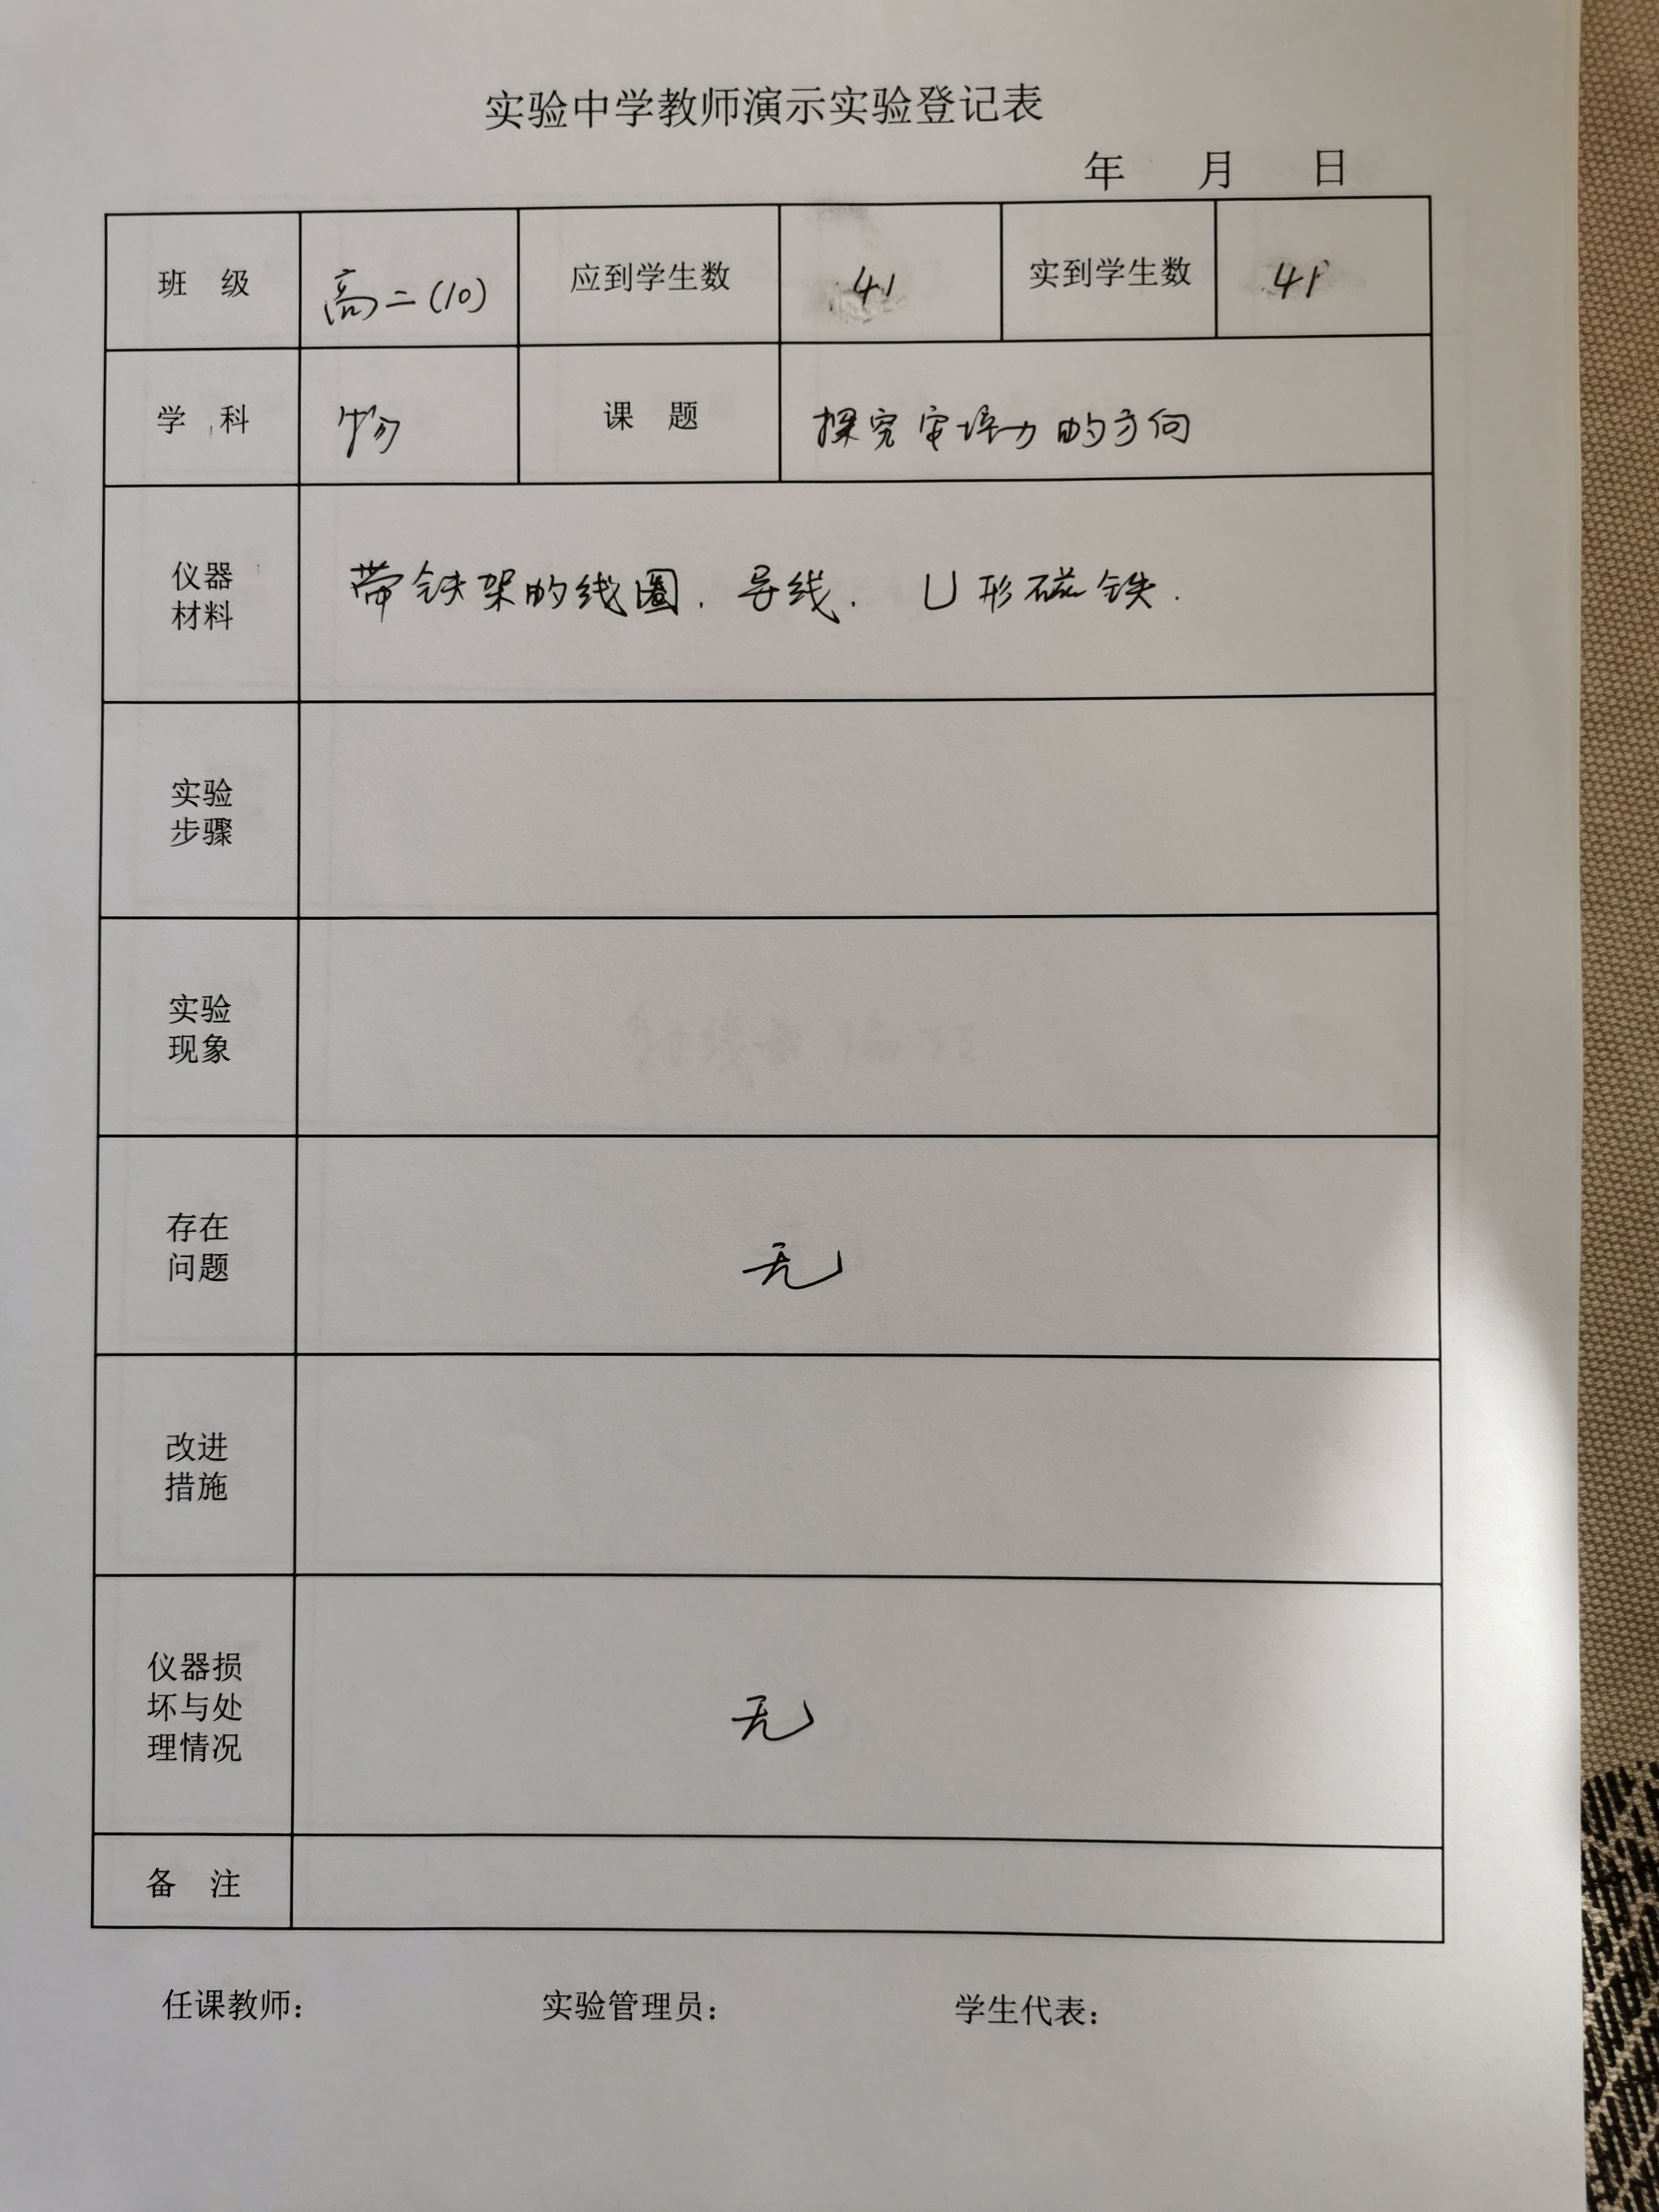 实验中学教师演示实验登记表
年 月 日
班 级 高二(10) 应到学生数 41 实到学生数 41
学 科 物 课 题 探究安培力的方向
仪器
材料
带铁架的线圈. 导线. U形磁铁.
实验
步骤
实验
现象
存在
问题
无
改进
措施
仪器损
坏与处
理情况
无
备 注
任课教师: 实验管理员: 学生代表: